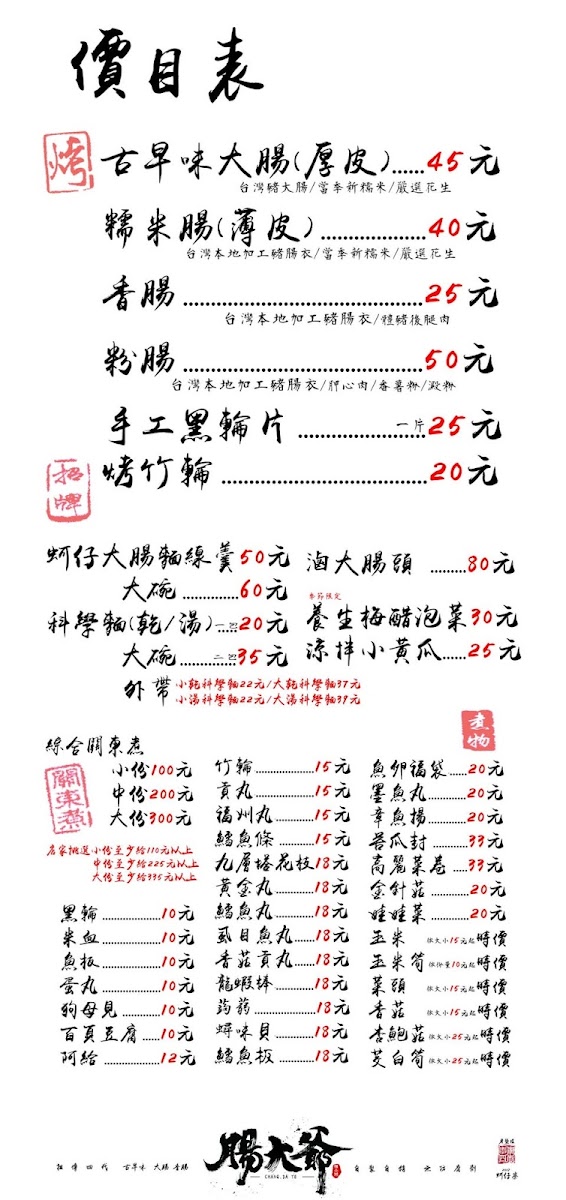 價目表
烤
古早味大腸(厚皮)......45元
台灣豬大腸/當季新糯米/嚴選花生
糯米腸(薄皮)..................40元
台灣本地加工豬腸衣/當季新糯米/嚴選花生
香腸..........................................25元
台灣本地加工豬腸衣/體豬後腿肉
粉腸..........................................50元
台灣本地加工豬腸衣/胛心肉/番薯粉/澱粉
手工黑輪片......................一片25元
烤竹輪....................................20元
招牌
蚵仔大腸麵線羹50元
大碗............60元
科學麵(乾/湯)...一包20元
大碗......二包35元
外帶 小乾科學麵22元/大乾科學麵37元
小湯科學麵22元/大湯科學麵37元
滷大腸頭.........80元
季節限定
養生梅醋泡菜30元
涼拌小黃瓜......25元
煮物
綜合關東煮
關東煮
小份100元
中份200元
大份300元
店家挑選小份至少給110元以上
中份至少給225元以上
大份至少給335元以上
黑輪..............10元
米血..............10元
魚板..............10元
蛋丸..............10元
狗母見..........10元
百頁豆腐.....10元
阿給..............12元
竹輪..................15元
貢丸..................15元
福州丸..............15元
鱈魚條..............15元
九層塔花枝18元
黃金丸..............18元
鱈魚丸..............18元
虱目魚丸..........18元
香菇貢丸..........18元
龍蝦棒..............18元
蒟蒻..................18元
蟳味貝..............18元
鱈魚板..............18元
魚卵福袋.....20元
墨魚丸..........20元
章魚揚..........20元
苦瓜封..........33元
高麗菜卷....33元
金針菇..........20元
娃娃菜..........20元
玉米 依大小15元起時價
玉米筍 依份量10元起時價
菜頭 依大小15元起時價
香菇 依大小15元起時價
杏鮑菇 依大小25元起時價
茭白筍 依大小25元起時價
腸大爺
CHANG DA YE
祖傳四代 古早味 大腸香腸
自製自銷